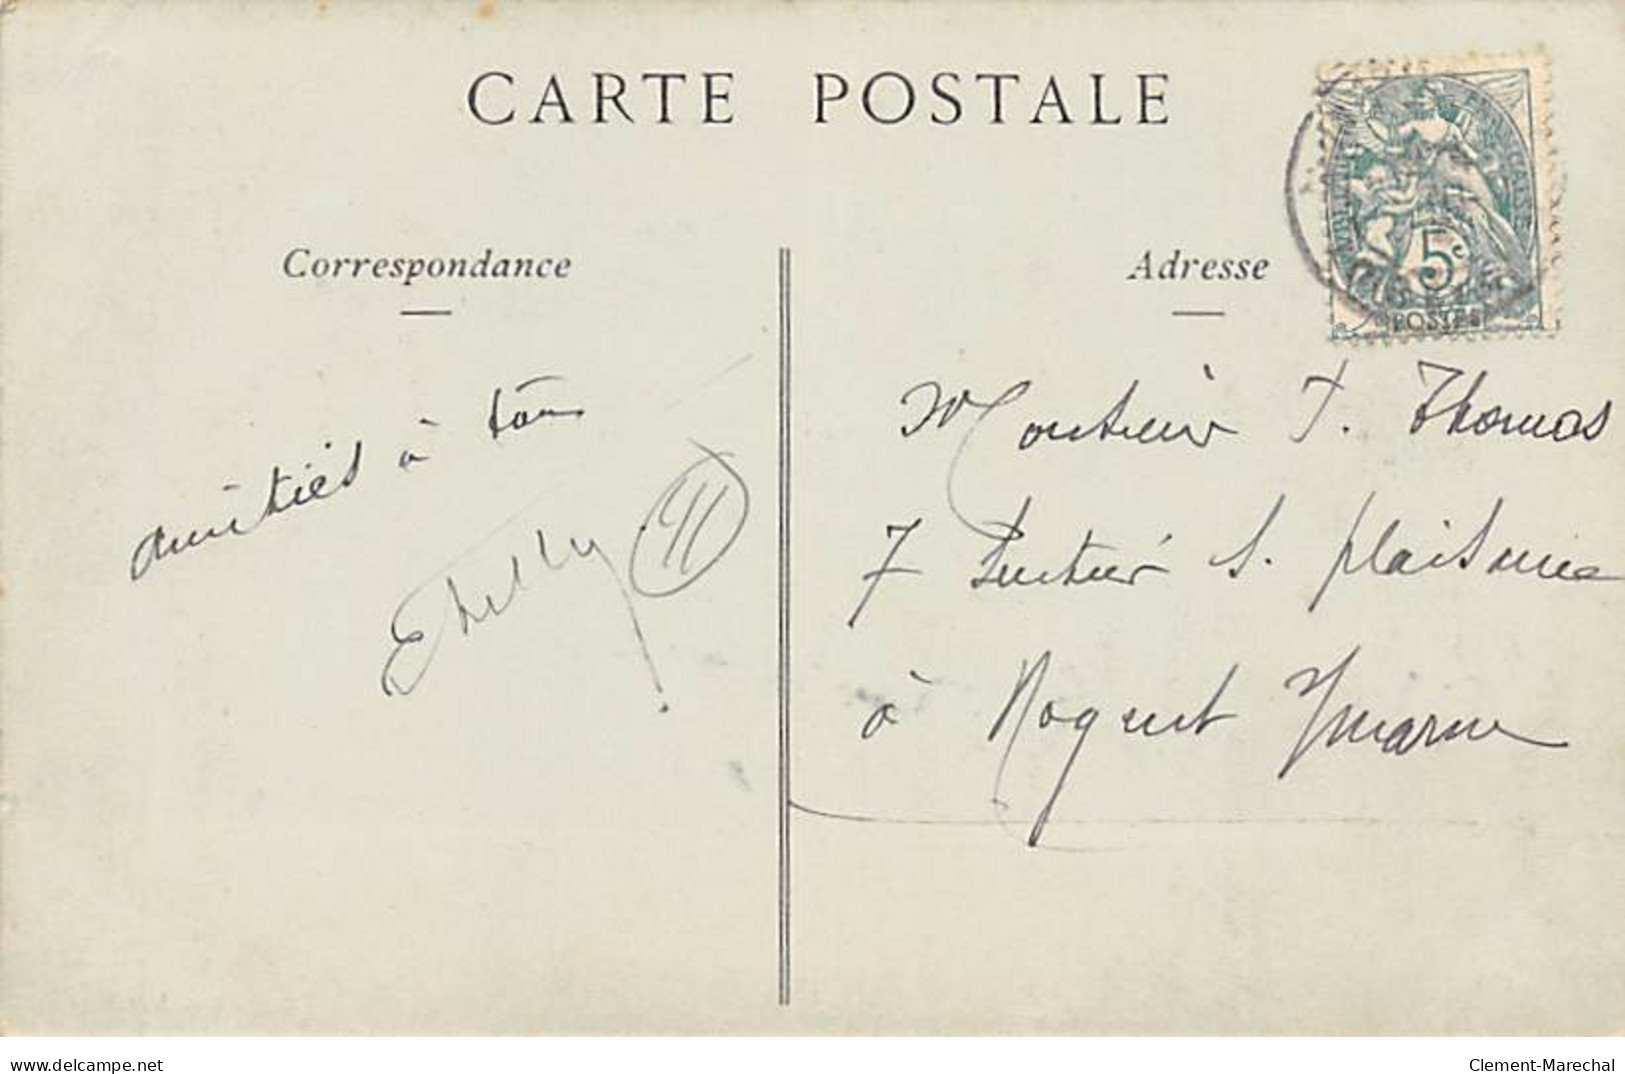 CARTE POSTALE
Correspondance
Adresse
5c
POSTES
amitiés à tous
Monsieur T. Thomas
7 Sentier S. plaisance
à Nogent s/marne
delcampe.net
Clement-Marechal